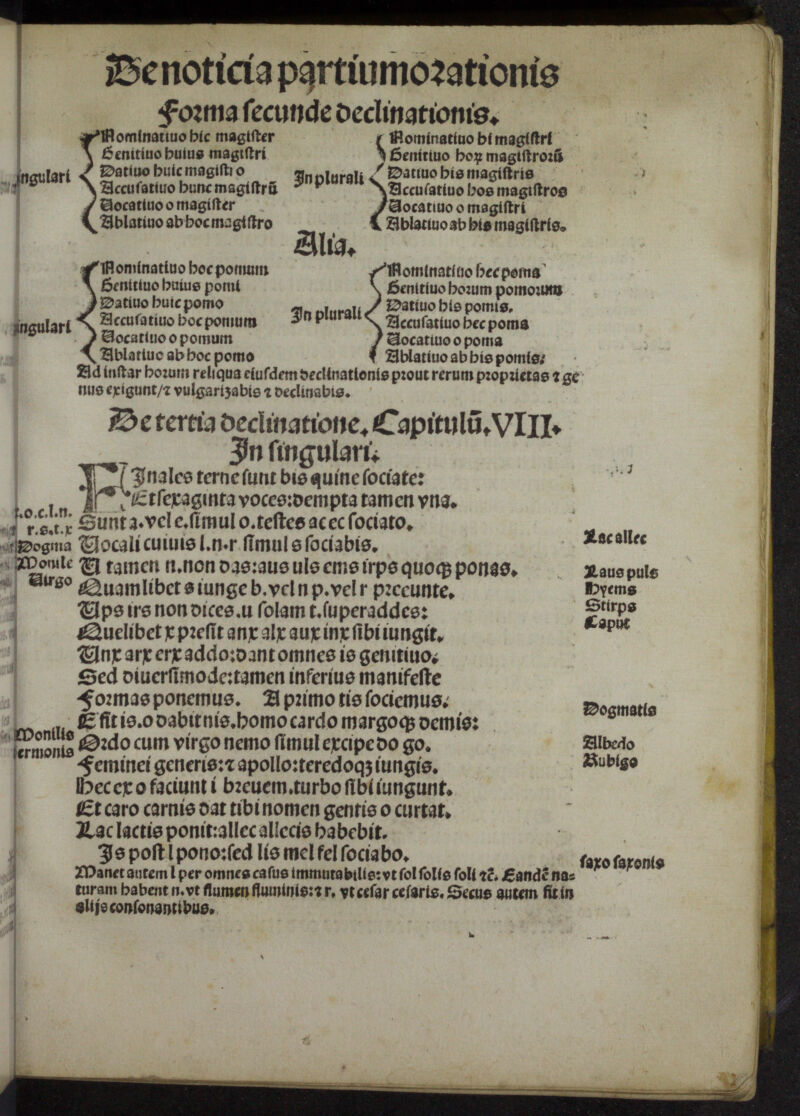 De noticia partiumorationis
Forma secunde declinationis.
Nominatiuo hic magister
Genitiuo huius magistri
Datiuo huic magistro
ingulari
Accusatiuo hunc magistrū
Uocatiuo o magister
Ablatiuo ab hoc magistro
In plurali
Nominatiuo hi magistri
Genitiuo hoꝝ magistroꝛū
Datiuo his magistris
Accusatiuo hos magistros
Uocatiuo o magistri
Ablatiuo ab his magistris.
Alia.
Nominatiuo hoc pomum
Genitiuo huius pomi
Datiuo huic pomo
ingulari
Accusatiuo hoc pomum
Uocatiuo o pomum
Ablatiuo ab hoc pomo
In plurali
Nominatiuo hec poma
Genitiuo hoꝛum pomoꝛum
Datiuo his pomis.
Accusatiuo hec poma
Uocatiuo o poma
Ablatiuo ab his pomis:
Ad instar hoꝛum reliqua eiusdem declinationis pꝛout rerum pꝛopꝛietas ⁊ ge
nus exigunt/⁊ vulgarizabis ⁊ declinabis.
De tertia declinatione. Capitulū.VIII.
In singulari.
FInales terne sunt bis quine sociate:
Et sexaginta voces:dempta tamen vna.
t.o.c.l.n.
r.s.t.x
Sunt a.vel e.simul o.testes ac ec sociato.
Dogma
Uocali cuiuis l.n.r simul s sociabis.
Lac allec
Monile
Uirgo
U tamen n.non das:aus uls ems irps quoqꝫ ponas.
Laus puls
Quamlibet s iunge b.vel n p.vel r pꝛecunte.
Hyems
Ups irs non dices.u solam t.superaddes:
Stirps
Quelibet x pꝛesit anx alx aux inx sibi iungit.
Caput
Unx arx erx addo:dant omnes is genitiuo:
Sed diuersimode:tamen inferius manifeste
Foꝛmas ponemus. A pꝛimo tis sociemus:
Dogmatis
E fit is.o dabit nis.homo cardo margoqꝫ demis:
Monilis
sermonis
Oꝛdo cum virgo nemo simul excipe do go.
Albedo
Feminei generis:⁊ apollo:teredoqꝫ iungis.
Rubigo
Hec ex o faciunt i bꝛeuem.turbo sibi iungunt.
Et caro carnis dat tibi nomen gentis o curtat.
Lac lactis ponit:allec allecis habebit.
Is post l pono:sed lis mel fel sociabo.
saxo saxonis
Manet autem l per omnes casus immutabilis:vt sol solis soli ⁊c̄. Eandē na⸗
turam habent n.vt flumen fluminis:⁊ r. vt cesar cesaris. Secus autem fit in
alijs consonantibus.